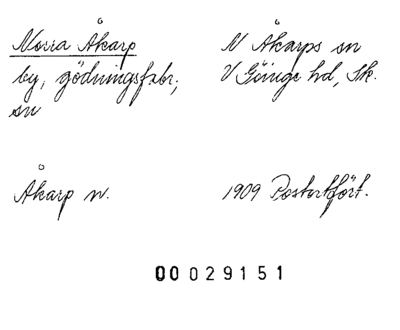 Norra Åkarp
N Åkarps sn
by, gödningsfabr;
V Göinge hd, Sk.
sn
Åkarp n.
1909 Postortfört.
00029151